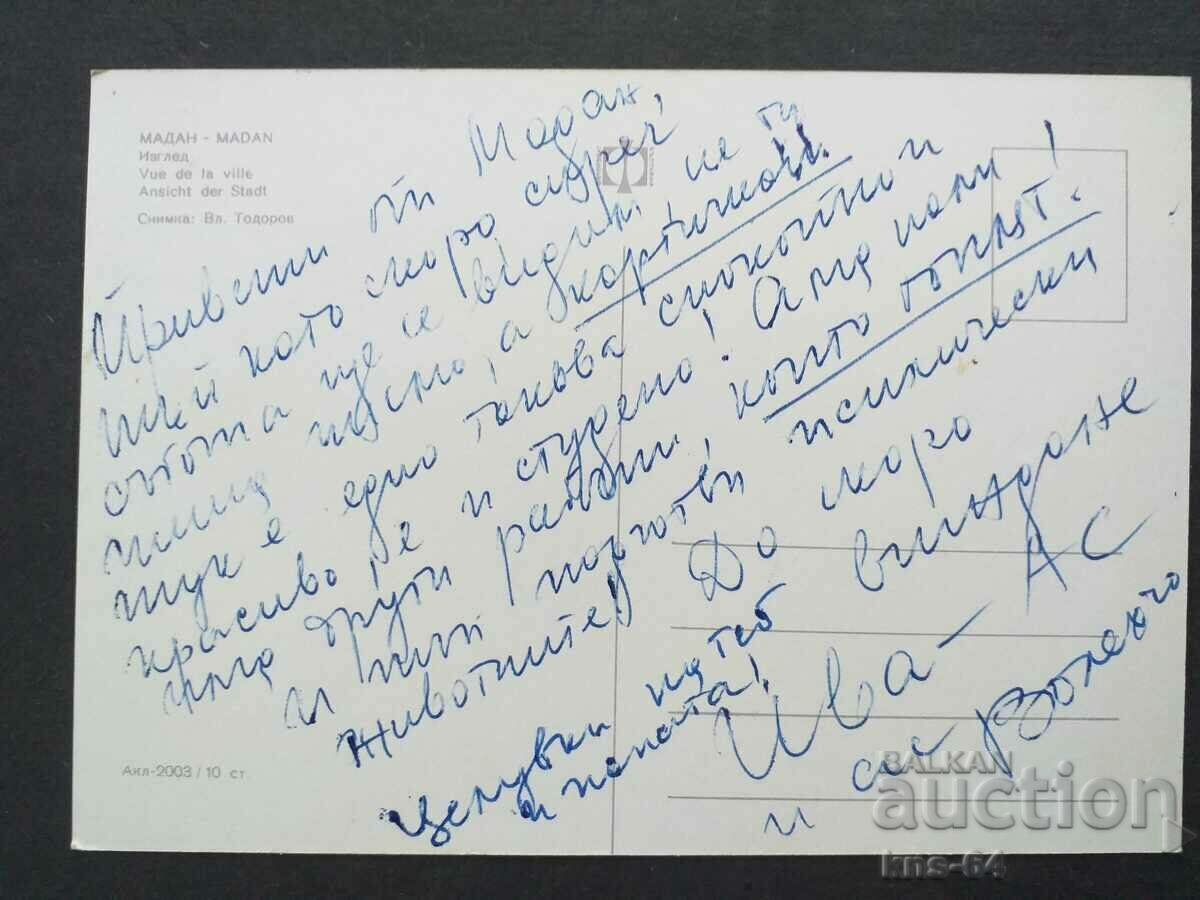 МАДАН - MADAN
Изглед
Vue de la ville
Ansicht der Stadt
Снимка: Вл. Тодоров
Привети от Мадан,
Тъй като скоро
събота ще се видим не ти
пиша писмо, а картичка!
тук е едно такова спокойно и
красиво е и студено! Ама пали!
има други работи, които топлят.
И ти подготви психически
животните! До скоро
виждане
Ива - АС
и се
целувки на теб
и папата!
Акл-2003/10 ст.
BALKAN
auction
kns-64